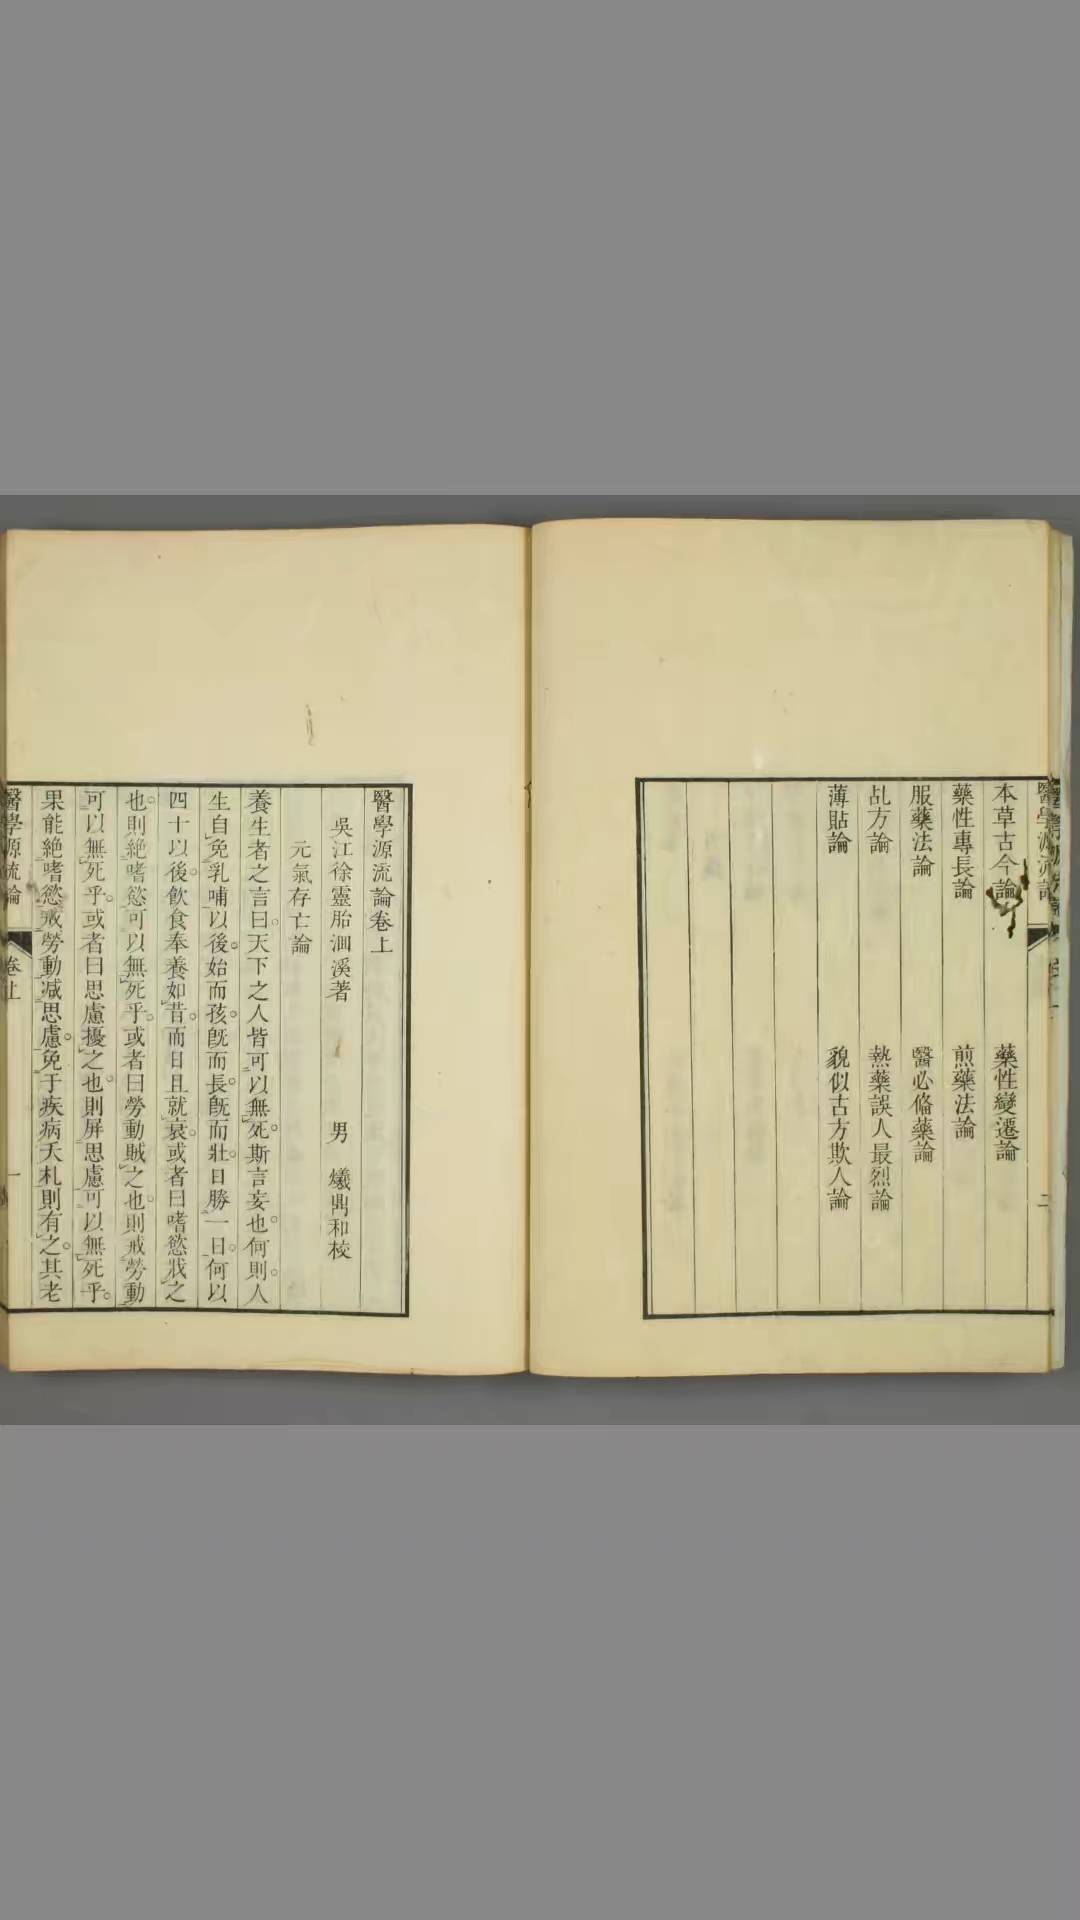 醫學源流論
二
本草古今論 藥性變遷論
藥性專長論 煎藥法論
服藥法論 醫必偹藥論
乩方論 熱藥誤人最烈論
薄貼論 貌似古方欺人論
醫學源流論卷上
吳江徐靈胎洄溪著 男 爔鼎和校
元氣存亡論
養生者之言曰。天下之人皆可以無死。斯言妄也。何則。人
生自免乳哺以後。始而孩。旣而長。旣而壯。日勝一日。何以
四十以後。飲食奉養如昔。而日且就衰。或者曰嗜慾戕之
也。則絕嗜慾可以無死乎。或者曰勞動賊之也。則戒勞動
可以無死乎。或者曰思慮擾之也。則屏思慮可以無死乎。
果能絕嗜慾戒勞動減思慮。免于疾病夭札則有之。其老
醫學源流論 卷上 一